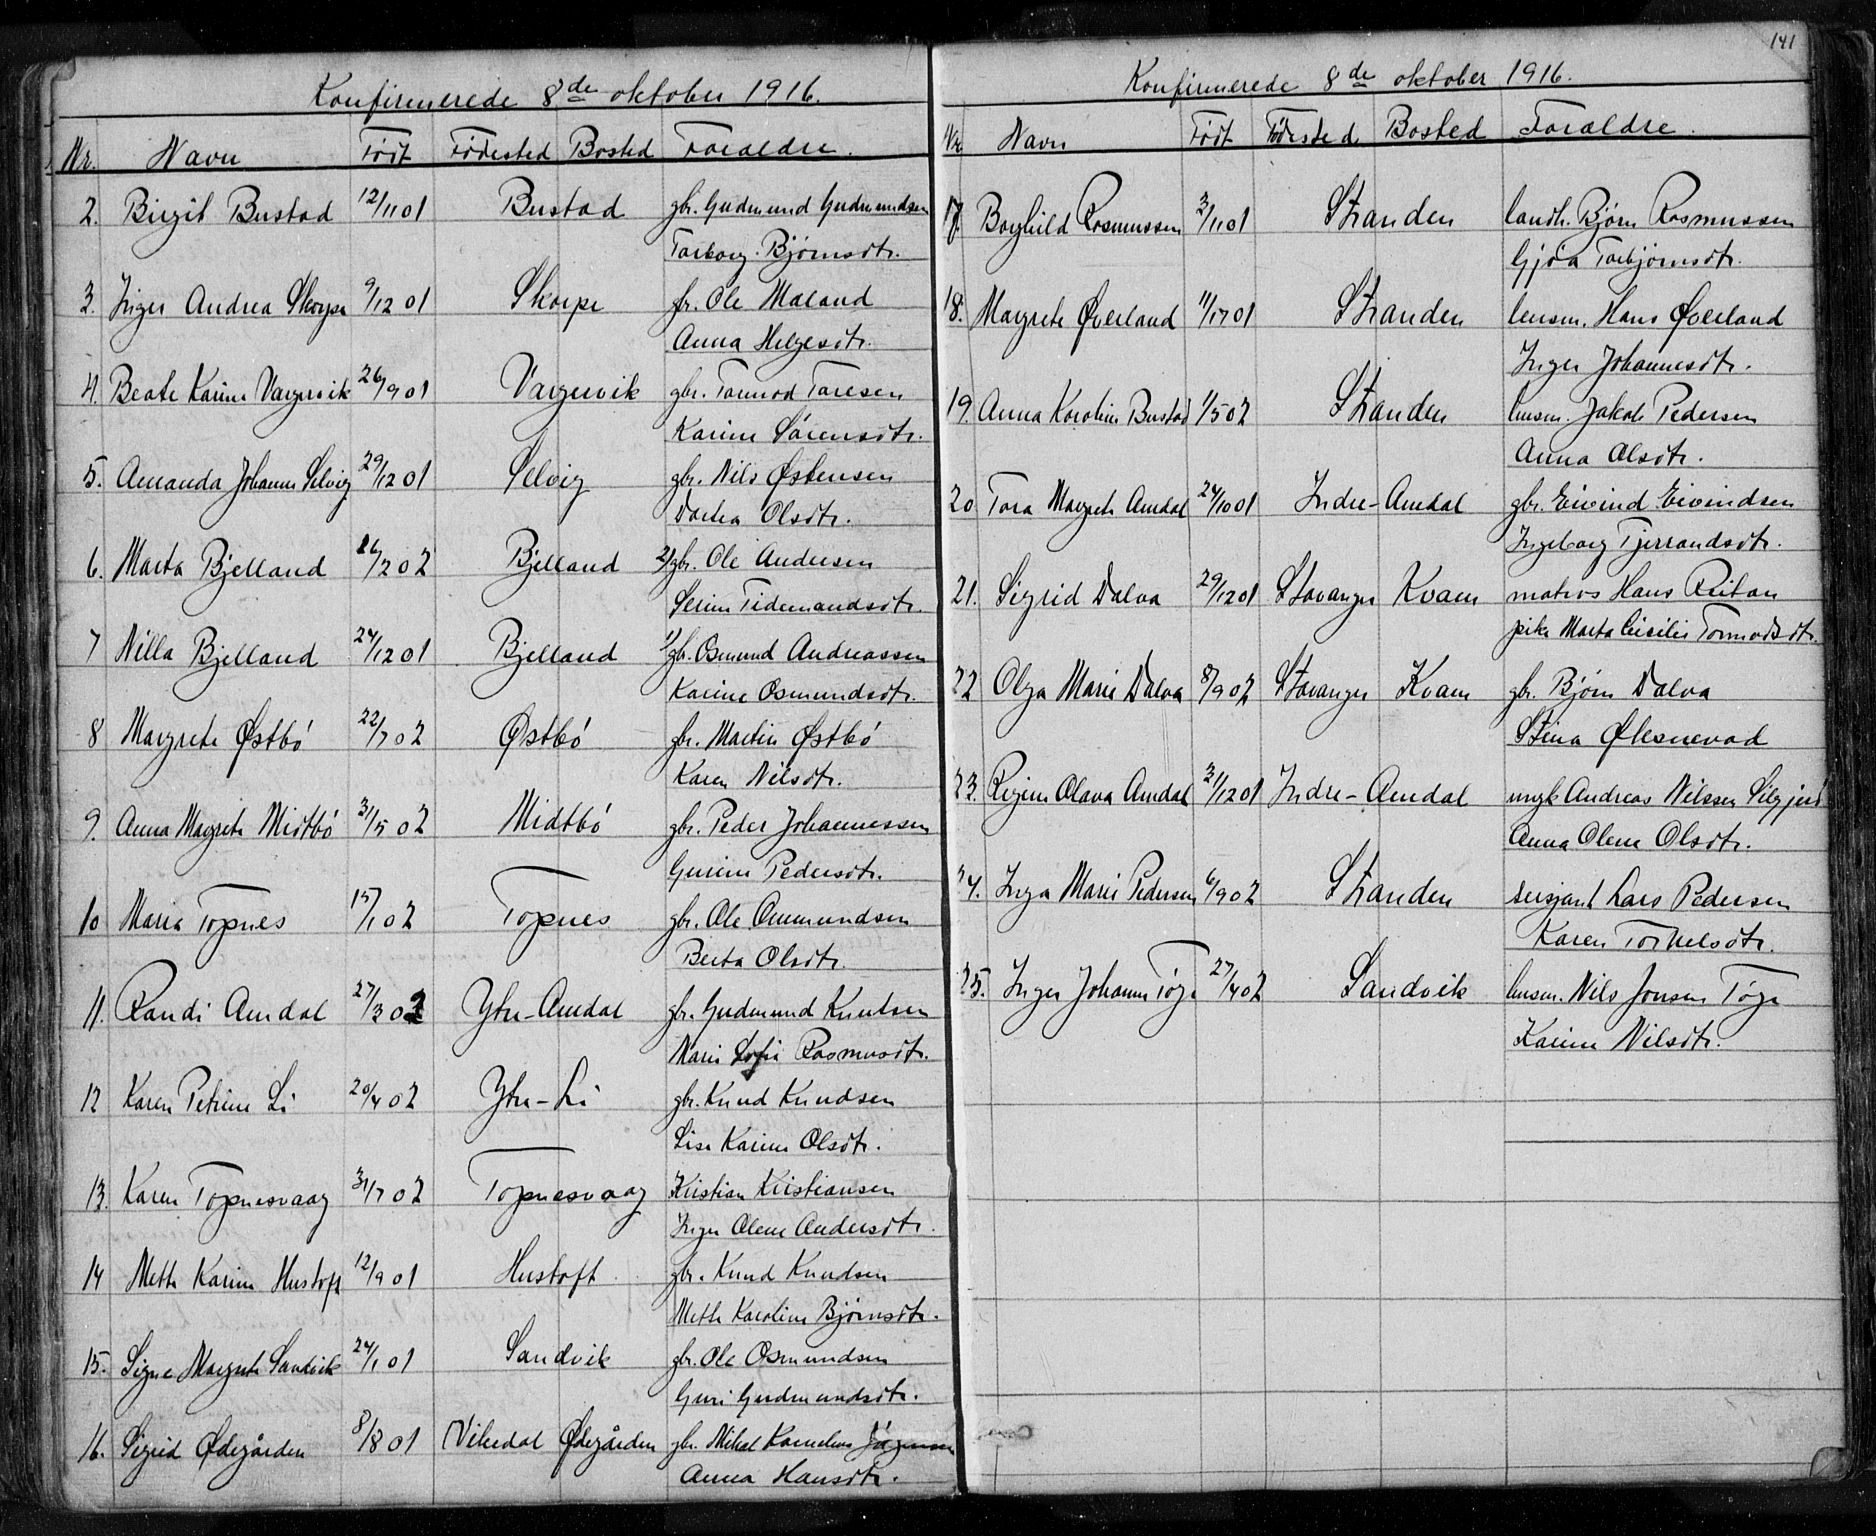 Konfirmerede 8de oktober 1916.
Nr. Navn Født Fødested Bosted Foraldre.
2. Birgit Bustad 12/11 01 Bustad gbr. Gudmund Gudmundsen
Torborg Bjørnsdtr.
3. Inger Andrea Skorpe 9/12 01 Skorpe fr. Ole Maland
Anna Helgesdtr.
4. Beate Karine Vargervik 26/9 01 Vargervik gbr. Tormod Toresen
Karine Sørensdtr.
5. Amanda Johanne Selvig 29/12 01 Selvig gbr. Nils Østensen
Dortea Olsdtr.
6. Marta Bjelland 26/2 02 Bjelland gbr. Ole Andersen
Serine Tidemandsdtr.
7 Nilla Bjelland 24/12 01 Bjelland gbr. Osmund Andreassen
Karine Osmundsdtr.
8 Margrete Østbó 22/7 02 Østbó gbr. Martin Østbó
Karen Nilsdtr.
9. Anna Magrete Midtbó 3/5 02 Midtbó gbr. Peder Johannessen
Gurine Pedersdtr.
10 Maria Topnes 15/1 02 Topnes gbr. Ole Ommundsen
Berta Olsdtr.
11. Randi Amdal 27/3 02 Ytre-Amdal gbr. Gudmund Knutsen
Marie Sofie Rasmusdtr.
12 Karen Petrine Li 20/4 02 Ytre-Li gbr. Knud Knudsen
Lise Karine Olsdtr.
13. Karen Topnesvaag 31/7 02 Topnesvaag Kristian Kristiansen
Inger Olene Andersdtr.
14 Mette Karine Hustoft 12/9 01 Hustoft gbr. Knud Knudsen
Mette Karoline Bjørnsdtr.
15. Signe Margrete Sandvik 24/1 01 Sandvik gbr. Ole Osmundsen
Guri Gudmundsdtr.
16. Sigrid Ødegården 8/8 01 Vikedal Ødegården gbr. Mikal Kornelius
Anna Hansdtr.
141
Konfirmerede 8de oktober 1916.
Nr Navn Født Fødested Bosted Foraldre.
17. Borghild Rasmussen 3/11 01 Stranden landh. Bjørn Rasmussen
Gjóa Torbjørnsdtr.
18. Margrete Øverland 11/12 01 Stranden lensm. Hans Øverland
Inger Johannesdtr.
19. Anna Karoline Bustad 1/5 02 Stranden husm. Jakob Pedersen
Anna Olsdtr.
20 Tora Margrete Amdal 24/10 01 Indre-Amdal gbr. Eivind Eivindsen
Ingeborg Tjerrandsdtr.
21. Sigrid Dalva 29/12 01 Stavanger Kvam matros Hans Reitan
pike Marta Cecilie Tormodsdtr.
22 Olga Marie Dalva 8/9 02 Stavanger Kvam gbr. Bjørn Dalva
Stina Ølesnevad
23. Regine Olava Amdal 31/12 01 Indre-Amdal ungk Andreas Nilssen
Anna Olene Olsdtr.
24. Inga Marie Pedersen 6/9 02 Stranden sersjant Lars Pedersen
Karen Torkelsdtr.
25. Inger Johanne Tøge 27/4 02 Sandvik husm. Nils Jonsen Tøge
Karine Nilsdtr.